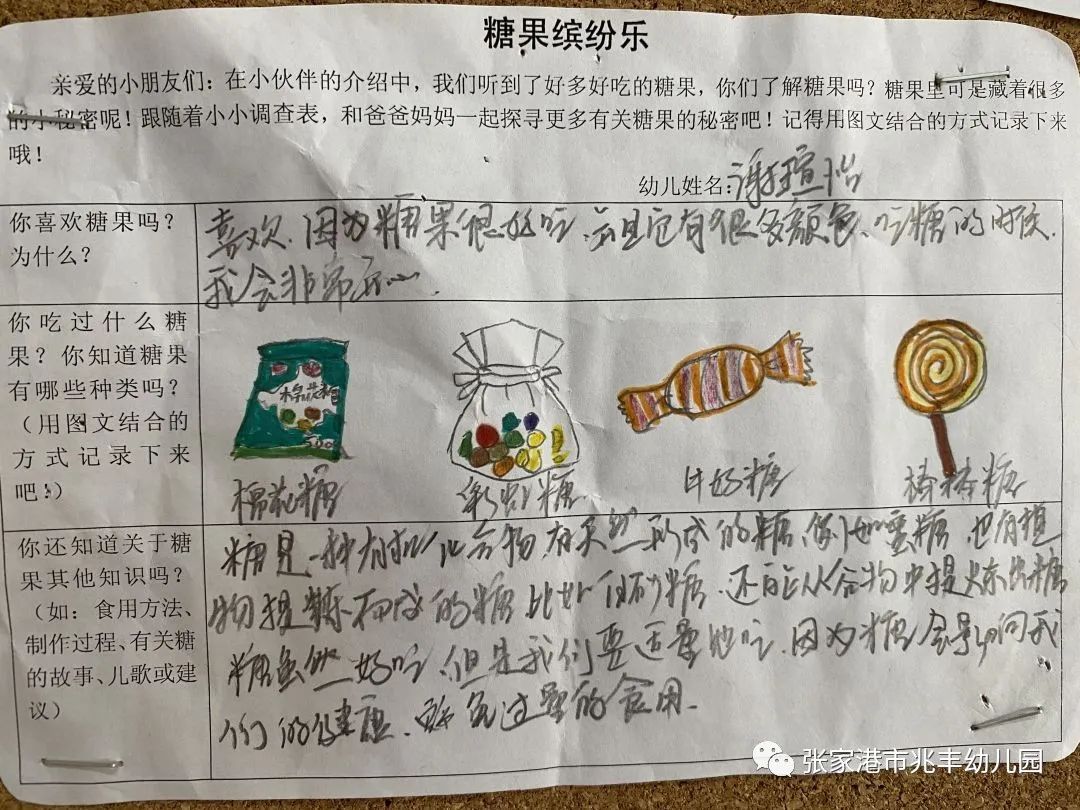 糖果缤纷乐
亲爱的小朋友们：在小伙伴的介绍中，我们听到了好多好吃的糖果，你们了解糖果吗？糖果里可是藏着很多
的小秘密呢！跟随着小小调查表，和爸爸妈妈一起探寻更多有关糖果的秘密吧！记得用图文结合的方式记录下来
哦！
幼儿姓名：谢瑄
你喜欢糖果吗？
为什么？
喜欢、因为糖果很好吃、而且它有很多颜色、吃糖的时候、
我会非常开心、
你吃过什么糖
果？你知道糖果
有哪些种类吗？
（用图文结合的
方式记录下来
吧！）
棉花糖
500
棉花糖
彩虹糖
牛奶糖
棒棒糖
你还知道关于糖
果其他知识吗？
（如：食用方法、
制作过程、有关糖
的故事、儿歌或建
议）
糖是一种有机化合物、有天然形成的糖、例如蜜糖、也有植
物提炼而成的糖比如白砂糖、还能从谷物中提炼出糖
糖虽然好吃、但是我们要适量地吃、因为糖会影响我
们的健康、避免过量的食用、
张家港市兆丰幼儿园